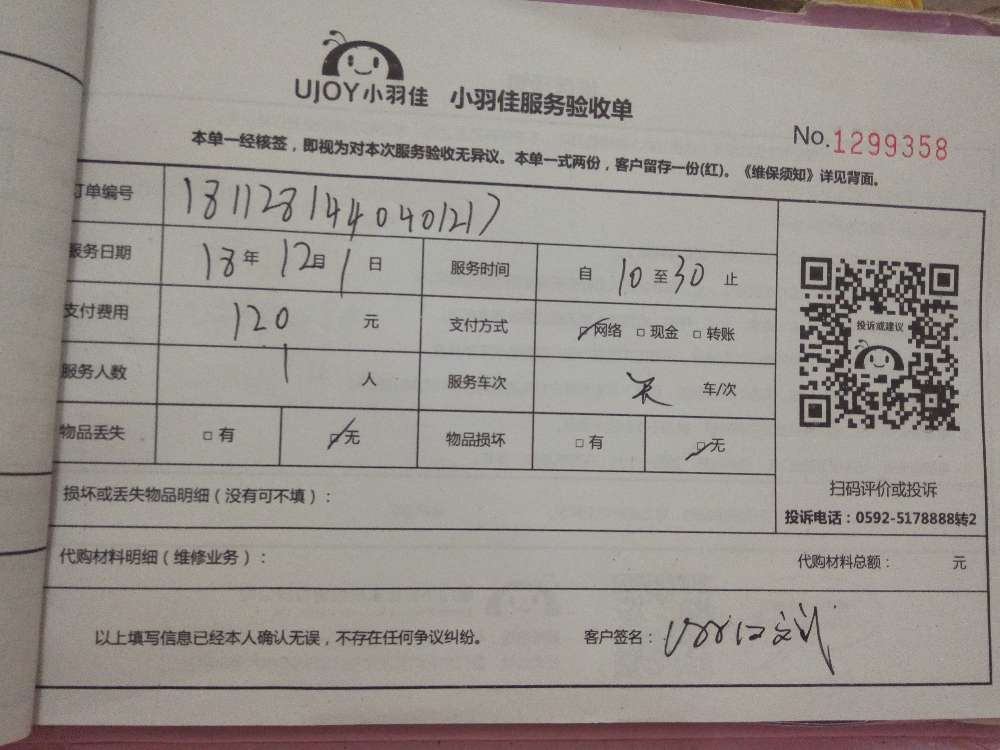 UJOY小羽佳 小羽佳服务验收单
No.1299358
本单一经核签，即视为对本次服务验收无异议。本单一式两份，客户留存一份(红)。《维保须知》详见背面。
订单编号 1811281440401217
服务日期 18年12月1日 服务时间 自10至30止
支付费用 120元 支付方式 网络 现金 转账
服务人数 1人 服务车次 车/次
物品丢失 有 无 物品损坏 有 无
损坏或丢失物品明细（没有可不填）：
投诉或建议
扫码评价或投诉
投诉电话：0592-5178888转2
代购材料明细（维修业务）： 代购材料总额： 元
以上填写信息已经本人确认无误，不存在任何争议纠纷。 客户签名：